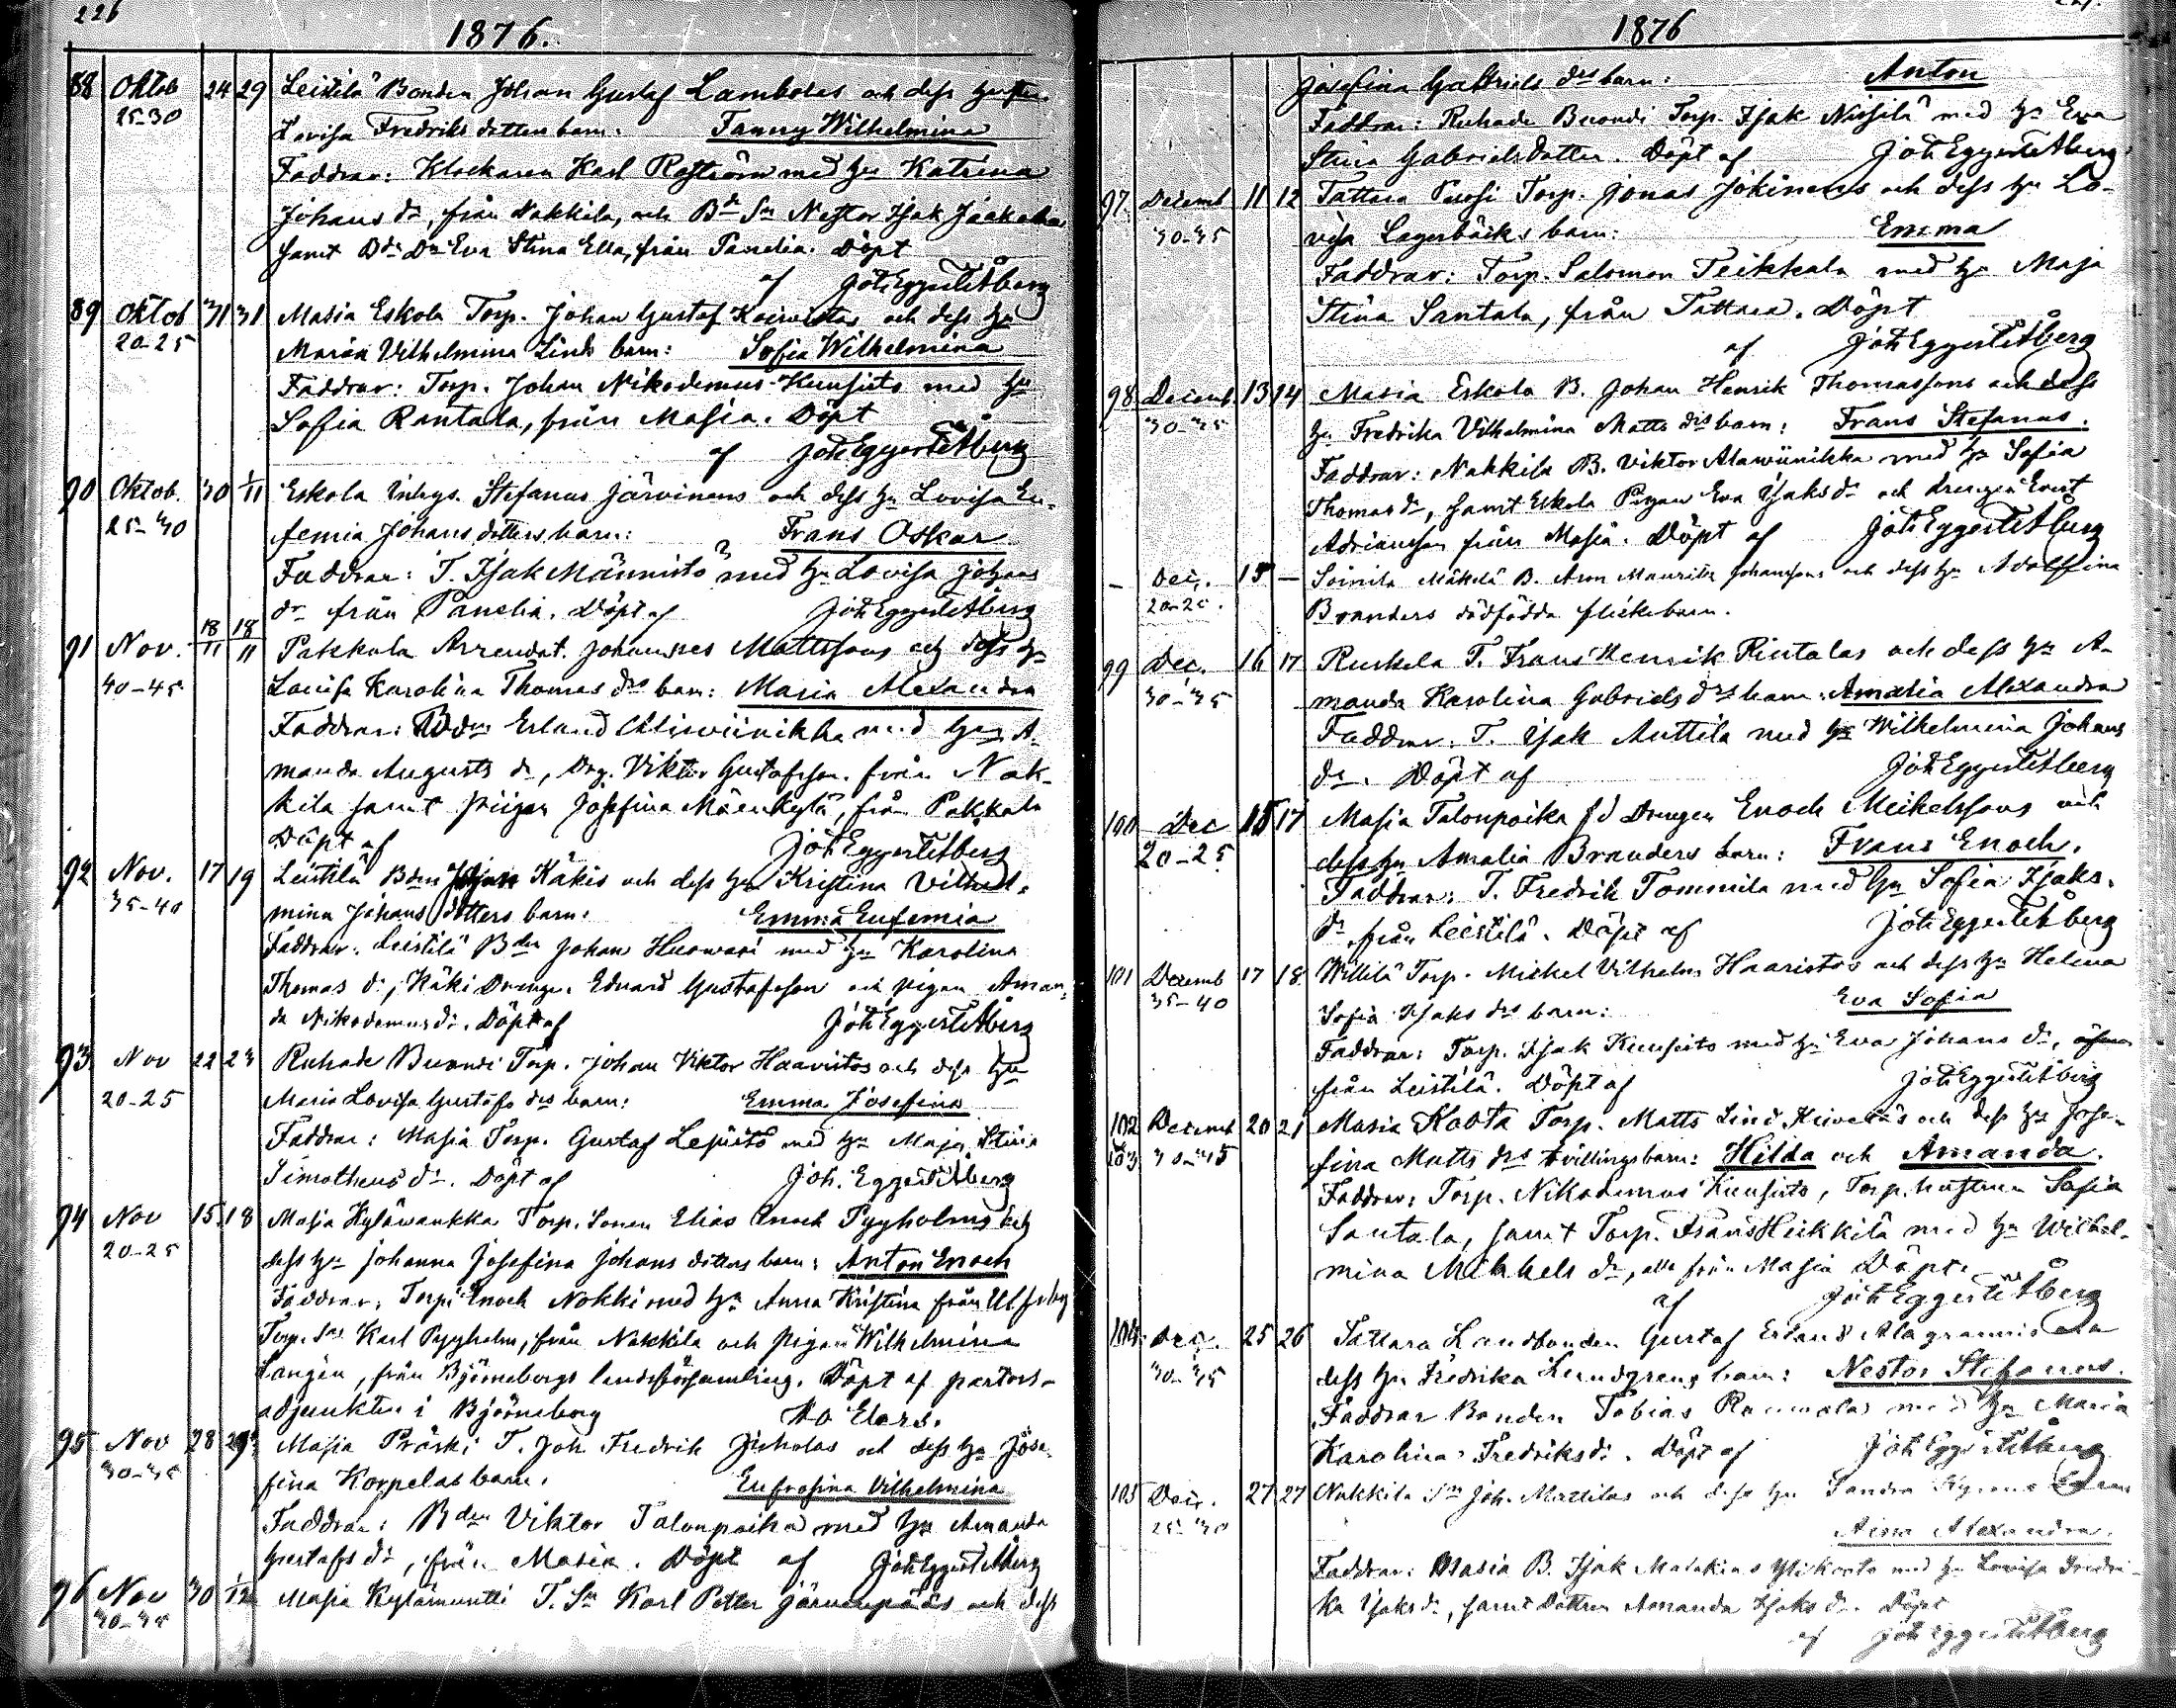 226
1876.
88 Oktob 24 29 Leistilä Bonden Johan Gustaf Lambolas och dess hustru
25-30 Lovisa Fredriks dotters barn: Fanny Wilhelmina
Faddrar: Klockaren Karl Roström med hu Katrina
Johans dr, från Nakkila, och Bde Sn Nestor Isak
samt Bds Dn Eva Stina Ella, från Panelia. Döpt
af Joh Eggert Etberg
89 Oktob 31 31 Masia Eskola Torp. Johan Gustaf Koivistos och dess hu
20-25 Maria Vilhelmina Linds barn: Sofia Wilhelmina
Faddrar: Torp. Johan Nikodemus Kuusisto med hu
Sofia Rantala, från Masia. Döpt
af Joh Eggert Etberg
90 Oktob. 30 1/11 Eskola Inhys. Stefanus Järvinens och dess hu Lovisa Eu-
25-30 femia Johans dotters barn: Frans Oskar
Faddrar: T. Isak Männistö med hu Lovisa Johans
dr från Panelia. Döpt af Joh Eggert Etberg
91 Nov. 18/11 18/11 Pakkala Arrendat. Johannes Mattssons och dess hu
40-45 Lovisa Karolina Thomas drs barn: Maria Alexandra
Faddrar: Bden Erland Aliswiinikka med hu A-
manda Augusts dr, Drg. Viktor Gustafsson från Nak-
kila samt pigan Josefina Mäenkylä, från Pakkala
Döpt af Joh Eggert Etberg
92 Nov. 17 19 Leistilä Bden Johan Käkis och dess hu Kristina Vilhel-
35-40 mina Johans dotters barn: Emma Eufemia
Faddrar: Leistilä Bden Johan Huowari med hu Karolina
Thomas dr, Käki Drengen Eduard Gustafsson och pigan Aman-
da Nikodemus dr. Döpt af Joh Eggert Etberg
93 Nov 22 23 Ruhade Buondi Torp. Johan Viktor Haavistos och dess hu
20-25 Maria Lovisa Gustafs drs barn: Emma Josefina
Faddrar: Masia Torp. Gustaf Lepistö med hu Maja Stina
Timotheus dr. Döpt af Joh. Eggert Etberg
94 Nov 15 18 Masia Kyläwankka Torp. Sonen Elias Enoch Pyyholms och
20-25 dess hu Johanna Josefina Johans dotters barn: Anton Enoch
Faddrar: Torp. Enoch Nokki med hu Anna Kristina från Ulfsby
Torp. Sn Karl Pyyholm, från Nakkila och pigan Wilhelmina
Langén, från Björneborgs landsförsamling. Döpt af pastors-
adjunkten i Björneborg
95 Nov 28 29 Masia Präski T. Joh Fredrik och dess hu Jose-
30-35 fina Korpelas barn. Eufrosina Vilhelmina
Faddrar: Bden Viktor Talonpoika med hu Amanda
Gustafs dr, från Masia. Döpt af Joh Eggert Etberg
96 Nov 30 1/12 Masia Kylämuntti T. Sn Karl Petter Järvenpääs och dess
30-35
1876
Josefina Gabriels drs barn: Anton
Faddrar: Ruhade Buondi Torp. Isak Nissilä med hu Eva
Stina Gabrielsdotter. Döpt af Joh Eggert Etberg
97. Decemb 11 12 Tattara Torp. Jonas Jokinens och dess hu Lo-
30-35 visa Lagerbäcks barn: Emma
Faddrar: Torp. Salomon Teikkala med hu Maja
Stina Santala, från Tattara. Döpt
af Joh Eggert Etberg
98 Decemb 13 14 Masia Eskola B. Johan Henrik Thomassons och dess
30-35 hu Fredrika Vilhelmina Matts drs barn: Frans Stefanus.
Faddrar: Nakkila B. Viktor Alawiinikka med hu Sofia
Thomas dr, samt Eskola Pigan Eva Isaks dr och drengen Evert
Adriansson från Masia. Döpt af Joh Eggert Etberg
– Dec. 15 – Soinila Mäkelä B. Aron Mauritz Johanssons och dess hu Adolfina
20-25. Branders dödfödda flickebarn.
99 Dec. 16 17 Ruskela T. Frans Henrik Rintalas och dess hu A-
30-35 manda Karolina Gabriels drs barn: Amalia Alexandra
Faddrar: T. Isak Anttila med hu Wilhelmina Johans
dr. Döpt af Joh Eggert Etberg
100 Dec 15 17 Masia Talonpoika f d Drengen Enoch Mickelssons och
20-25 dess hu Amalia Branders barn: Frans Enoch.
Faddrar: T. Fredrik Tommila med hu Sofia Isaks
dr från Leistilä. Döpt af Joh Eggert Etberg
101 Decemb 17 18 Willilä Torp. Mickel Vilhelm Haavistos och dess hu Helena
35-40 Sofia Isaks drs barn: Eva Sofia
Faddrar: Torp. Isak Kuusisto med hu Eva Johans dr,
från Leistilä. Döpt af Joh Eggert Etberg
102 Decemb 20 21 Masia Kaota Torp. Matts Lind och dess hu Jose-
103 30-35 fina Matts drs tvillingebarn: Hilda och Amanda.
Faddrar: Torp. Nikodemus Kuusisto, Torp. hustrun Sofia
Santala, samt Torp. Frans Heikkilä med hu Wilhel-
mina Mikkels dr, alla från Masia Döpt.
af Joh Eggert Etberg
104 Dec. 25 26 Tattara Landbonden Gustaf Erland Alagrannis och
30-35 dess hu Fredrika Lundgrens barn: Nestor Stefanus.
Faddrar Bonden Tobias med hu Maria
Karolina Fredriks dr. Döpt af Joh Eggert Etberg
105 Dec. 27 27 Nakkila Sn Joh. Mattilas och dess hu Sandra
25-30 Aina Alexandra.
Faddrar: Masia B. Isak Malakias Ylikaota med hu Lovisa Fredri-
ka Isaks dr, samt Dottren Amanda Isaks dr. Döpt
af Joh Eggert Etberg